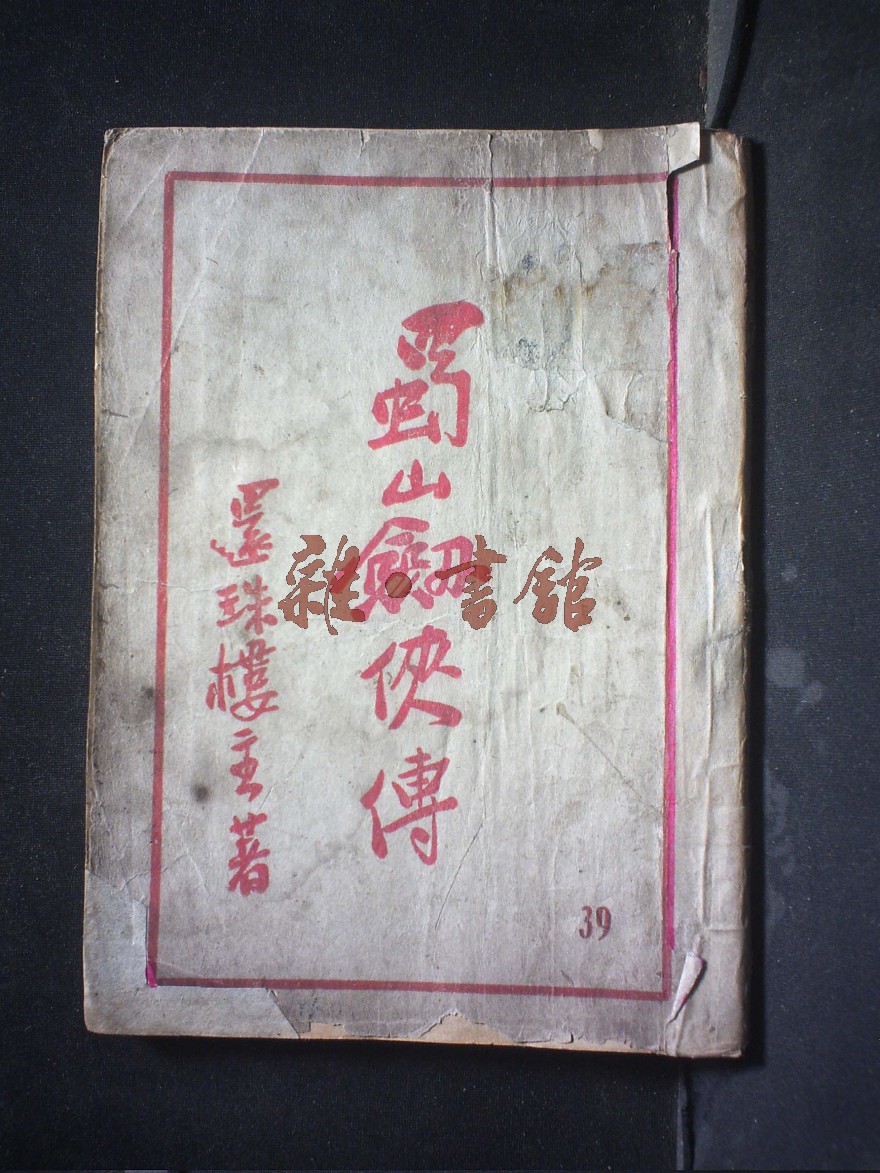 蜀山劎俠傳
還珠樓主著
39
雜·書館